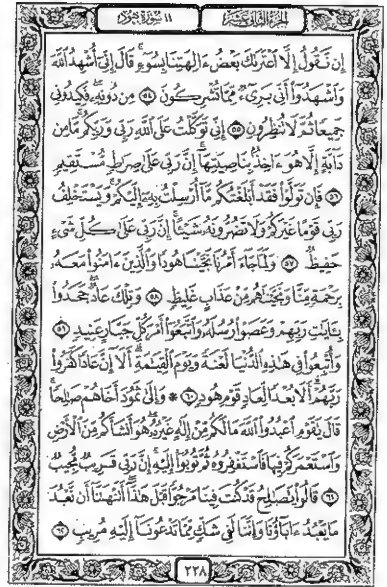 الجزء الثاني عشر ١١ سورة هود
إِن نَّقُولُ إِلَّا ٱعْتَرَىٰكَ بَعْضُ ءَالِهَتِنَا بِسُوٓءٍ ۗ قَالَ إِنِّىٓ أُشْهِدُ ٱللَّهَ
وَٱشْهَدُوٓا۟ أَنِّى بَرِىٓءٌ مِّمَّا تُشْرِكُونَ ۝٥٤ مِن دُونِهِۦ ۖ فَكِيدُونِى
جَمِيعًا ثُمَّ لَا تُنظِرُونِ ۝٥٥ إِنِّى تَوَكَّلْتُ عَلَى ٱللَّهِ رَبِّى وَرَبِّكُم ۚ مَّا مِن
دَآبَّةٍ إِلَّا هُوَ ءَاخِذٌۢ بِنَاصِيَتِهَآ ۚ إِنَّ رَبِّى عَلَىٰ صِرَٰطٍ مُّسْتَقِيمٍ
۝٥٦ فَإِن تَوَلَّوْا۟ فَقَدْ أَبْلَغْتُكُم مَّآ أُرْسِلْتُ بِهِۦٓ إِلَيْكُمْ ۚ وَيَسْتَخْلِفُ
رَبِّى قَوْمًا غَيْرَكُمْ وَلَا تَضُرُّونَهُۥ شَيْـًٔا ۚ إِنَّ رَبِّى عَلَىٰ كُلِّ شَىْءٍ
حَفِيظٌ ۝٥٧ وَلَمَّا جَآءَ أَمْرُنَا نَجَّيْنَا هُودًا وَٱلَّذِينَ ءَامَنُوا۟ مَعَهُۥ
بِرَحْمَةٍ مِّنَّا وَنَجَّيْنَٰهُم مِّنْ عَذَابٍ غَلِيظٍ ۝٥٨ وَتِلْكَ عَادٌ ۖ جَحَدُوا۟
بِـَٔايَٰتِ رَبِّهِمْ وَعَصَوْا۟ رُسُلَهُۥ وَٱتَّبَعُوٓا۟ أَمْرَ كُلِّ جَبَّارٍ عَنِيدٍ ۝٥٩
وَأُتْبِعُوا۟ فِى هَٰذِهِ ٱلدُّنْيَا لَعْنَةً وَيَوْمَ ٱلْقِيَٰمَةِ ۗ أَلَآ إِنَّ عَادًا كَفَرُوا۟
رَبَّهُمْ ۗ أَلَا بُعْدًا لِّعَادٍ قَوْمِ هُودٍ ۝٦٠ ۞ وَإِلَىٰ ثَمُودَ أَخَاهُمْ صَٰلِحًا ۚ
قَالَ يَٰقَوْمِ ٱعْبُدُوا۟ ٱللَّهَ مَا لَكُم مِّنْ إِلَٰهٍ غَيْرُهُۥ ۖ هُوَ أَنشَأَكُم مِّنَ ٱلْأَرْضِ
وَٱسْتَعْمَرَكُمْ فِيهَا فَٱسْتَغْفِرُوهُ ثُمَّ تُوبُوٓا۟ إِلَيْهِ ۚ إِنَّ رَبِّى قَرِيبٌ مُّجِيبٌ
۝٦١ قَالُوا۟ يَٰصَٰلِحُ قَدْ كُنتَ فِينَا مَرْجُوًّا قَبْلَ هَٰذَآ ۖ أَتَنْهَىٰنَآ أَن نَّعْبُدَ
مَا يَعْبُدُ ءَابَآؤُنَا وَإِنَّنَا لَفِى شَكٍّ مِّمَّا تَدْعُونَآ إِلَيْهِ مُرِيبٍ ۝٦٢
٢٢٨